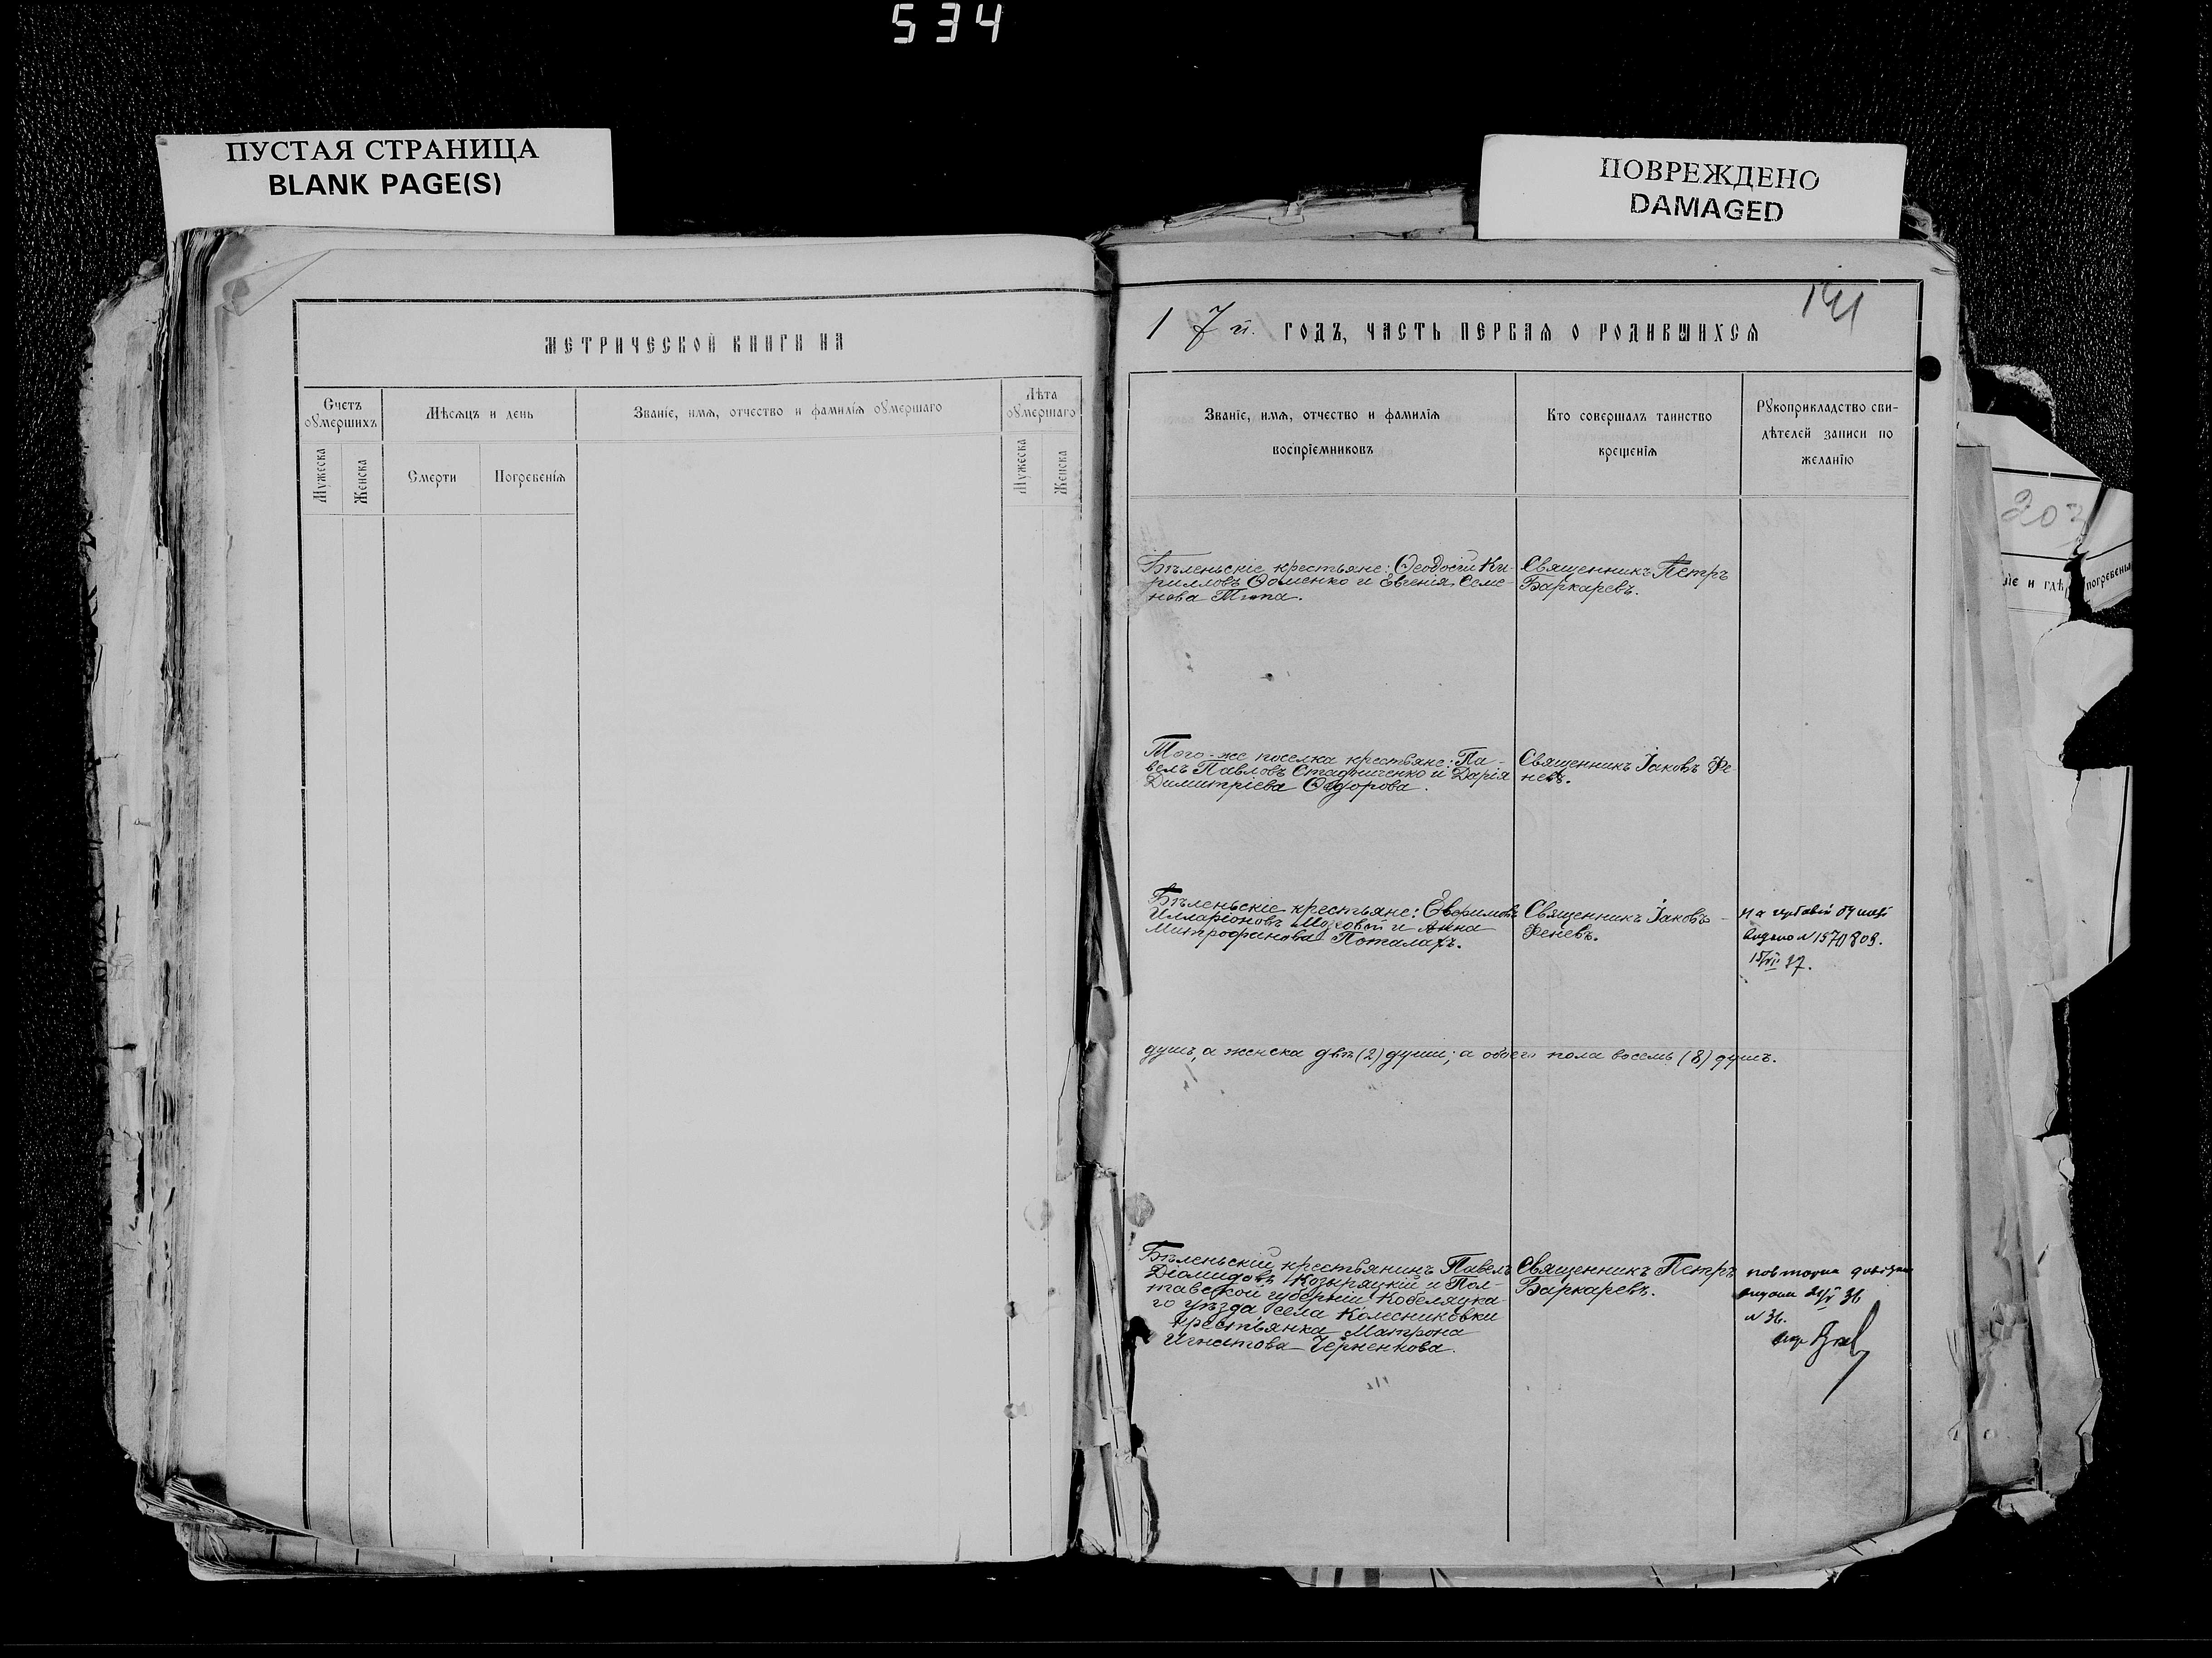 534
ПУСТАЯ СТРАНИЦА
BLANK PAGE(S)
ПОВРЕЖДЕНО
DAMAGED
МЕТРИЧЕСКОЙ КНИГИ НА
Счетъ
оумершихъ
Мѣсяцъ и день
Званіе, имя, отчество и фамилія оумершаго
Лѣта
оумершаго
Мужеска
Женска
Смерти
Погребенія
Мужеска
Женска
141
1 7 й. ГОДЪ, ЧАСТЬ ПЕРВАЯ О РОДИВШИХСЯ
Званіе, имя, отчество и фамилія
воспріемниковъ
Кто совершалъ таинство
крещенія
Рукоприкладство сви-
дѣтелей записи по
желанію
Бѣленьскіе крестьяне: Ѳеодосій Ки-
рилловъ Ѳоменко и Евгенія Семе-
нова
Священникъ Петръ
Баркаревъ.
Того-же поселка крестьяне: Па-
велъ Павловъ Стадниченко и Дарія
Димитріева Ѳедорова.
Священникъ Іаковъ Фе
невъ.
Бѣленьскіе крестьяне: Евфимовъ
Илларіоновъ и Анна
Митрофанова Поталахъ.
Священникъ Іаковъ
Феневъ.
На
видано N 1570809.
15/VII 37.
душъ, а женска двѣ (2) души; а обоего пола восемь (8) душъ.
Бѣленьскій крестьянинъ Павелъ
Діомидовъ Козыряцкій и Пол-
тавской губерніи Кобеляцка-
го уѣзда села Колесниковки
крестьянка Матрона
Игнатова Черненкова.
Священникъ Петръ
Баркаревъ.
повторна
видана 36
N 36.
203
іе и гдѣ погребены